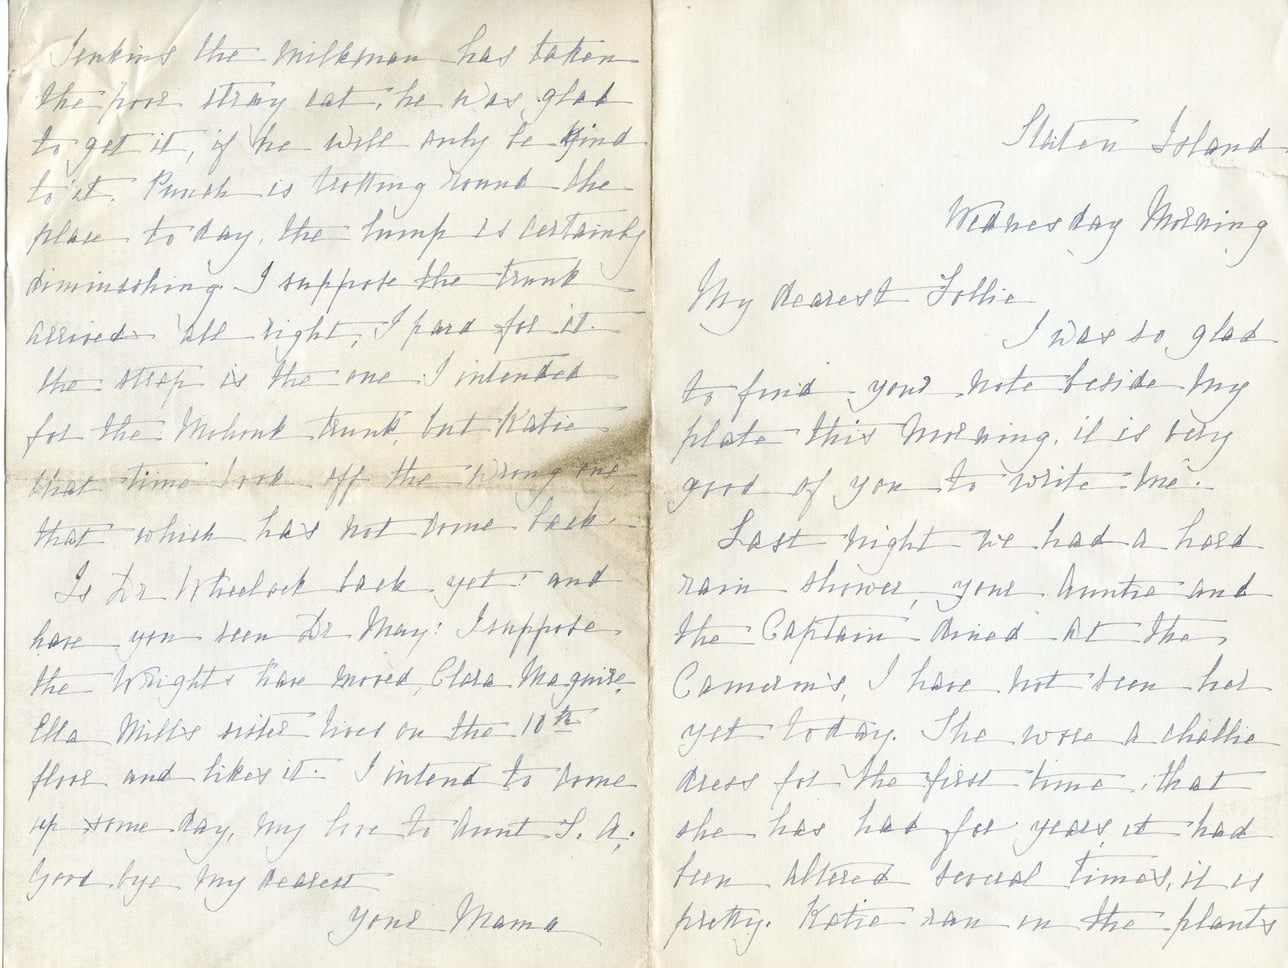 Staten Island
Wednesday Morning
My dearest Tollie
I was so glad
to find your note beside my
plate this morning. it is very
good of you to write me.
Last night we had a hard
rain shower, your Auntie and
the Captain dined at the
Camerons, I have not seen her
yet today. She wore a challie
dress for the first time, that
she has had for years, it had
been altered several times, it is
pretty. Katie ran in the plants
Jenkins the milkman has taken
the poor stray cat, he was glad
to get it, if he will only be kind
to it. Punch is trotting round the
place to day, the lump is certainly
diminishing. I suppose the trunk
arrived all right, I paid for it.
the strap is the one I intended
for the Mohonk trunk, but Katie
that time took off the wrong one
that which has not come back.
Is Dr Wheelock back yet? and
have you seen Dr May? I suppose
the Wrights have moved, Clara Maguire,
Ella Mills sister lives on the 10th
floor and likes it. I intend to come
up some day, my love to Aunt L. A.
Good bye my dearest
your Mama